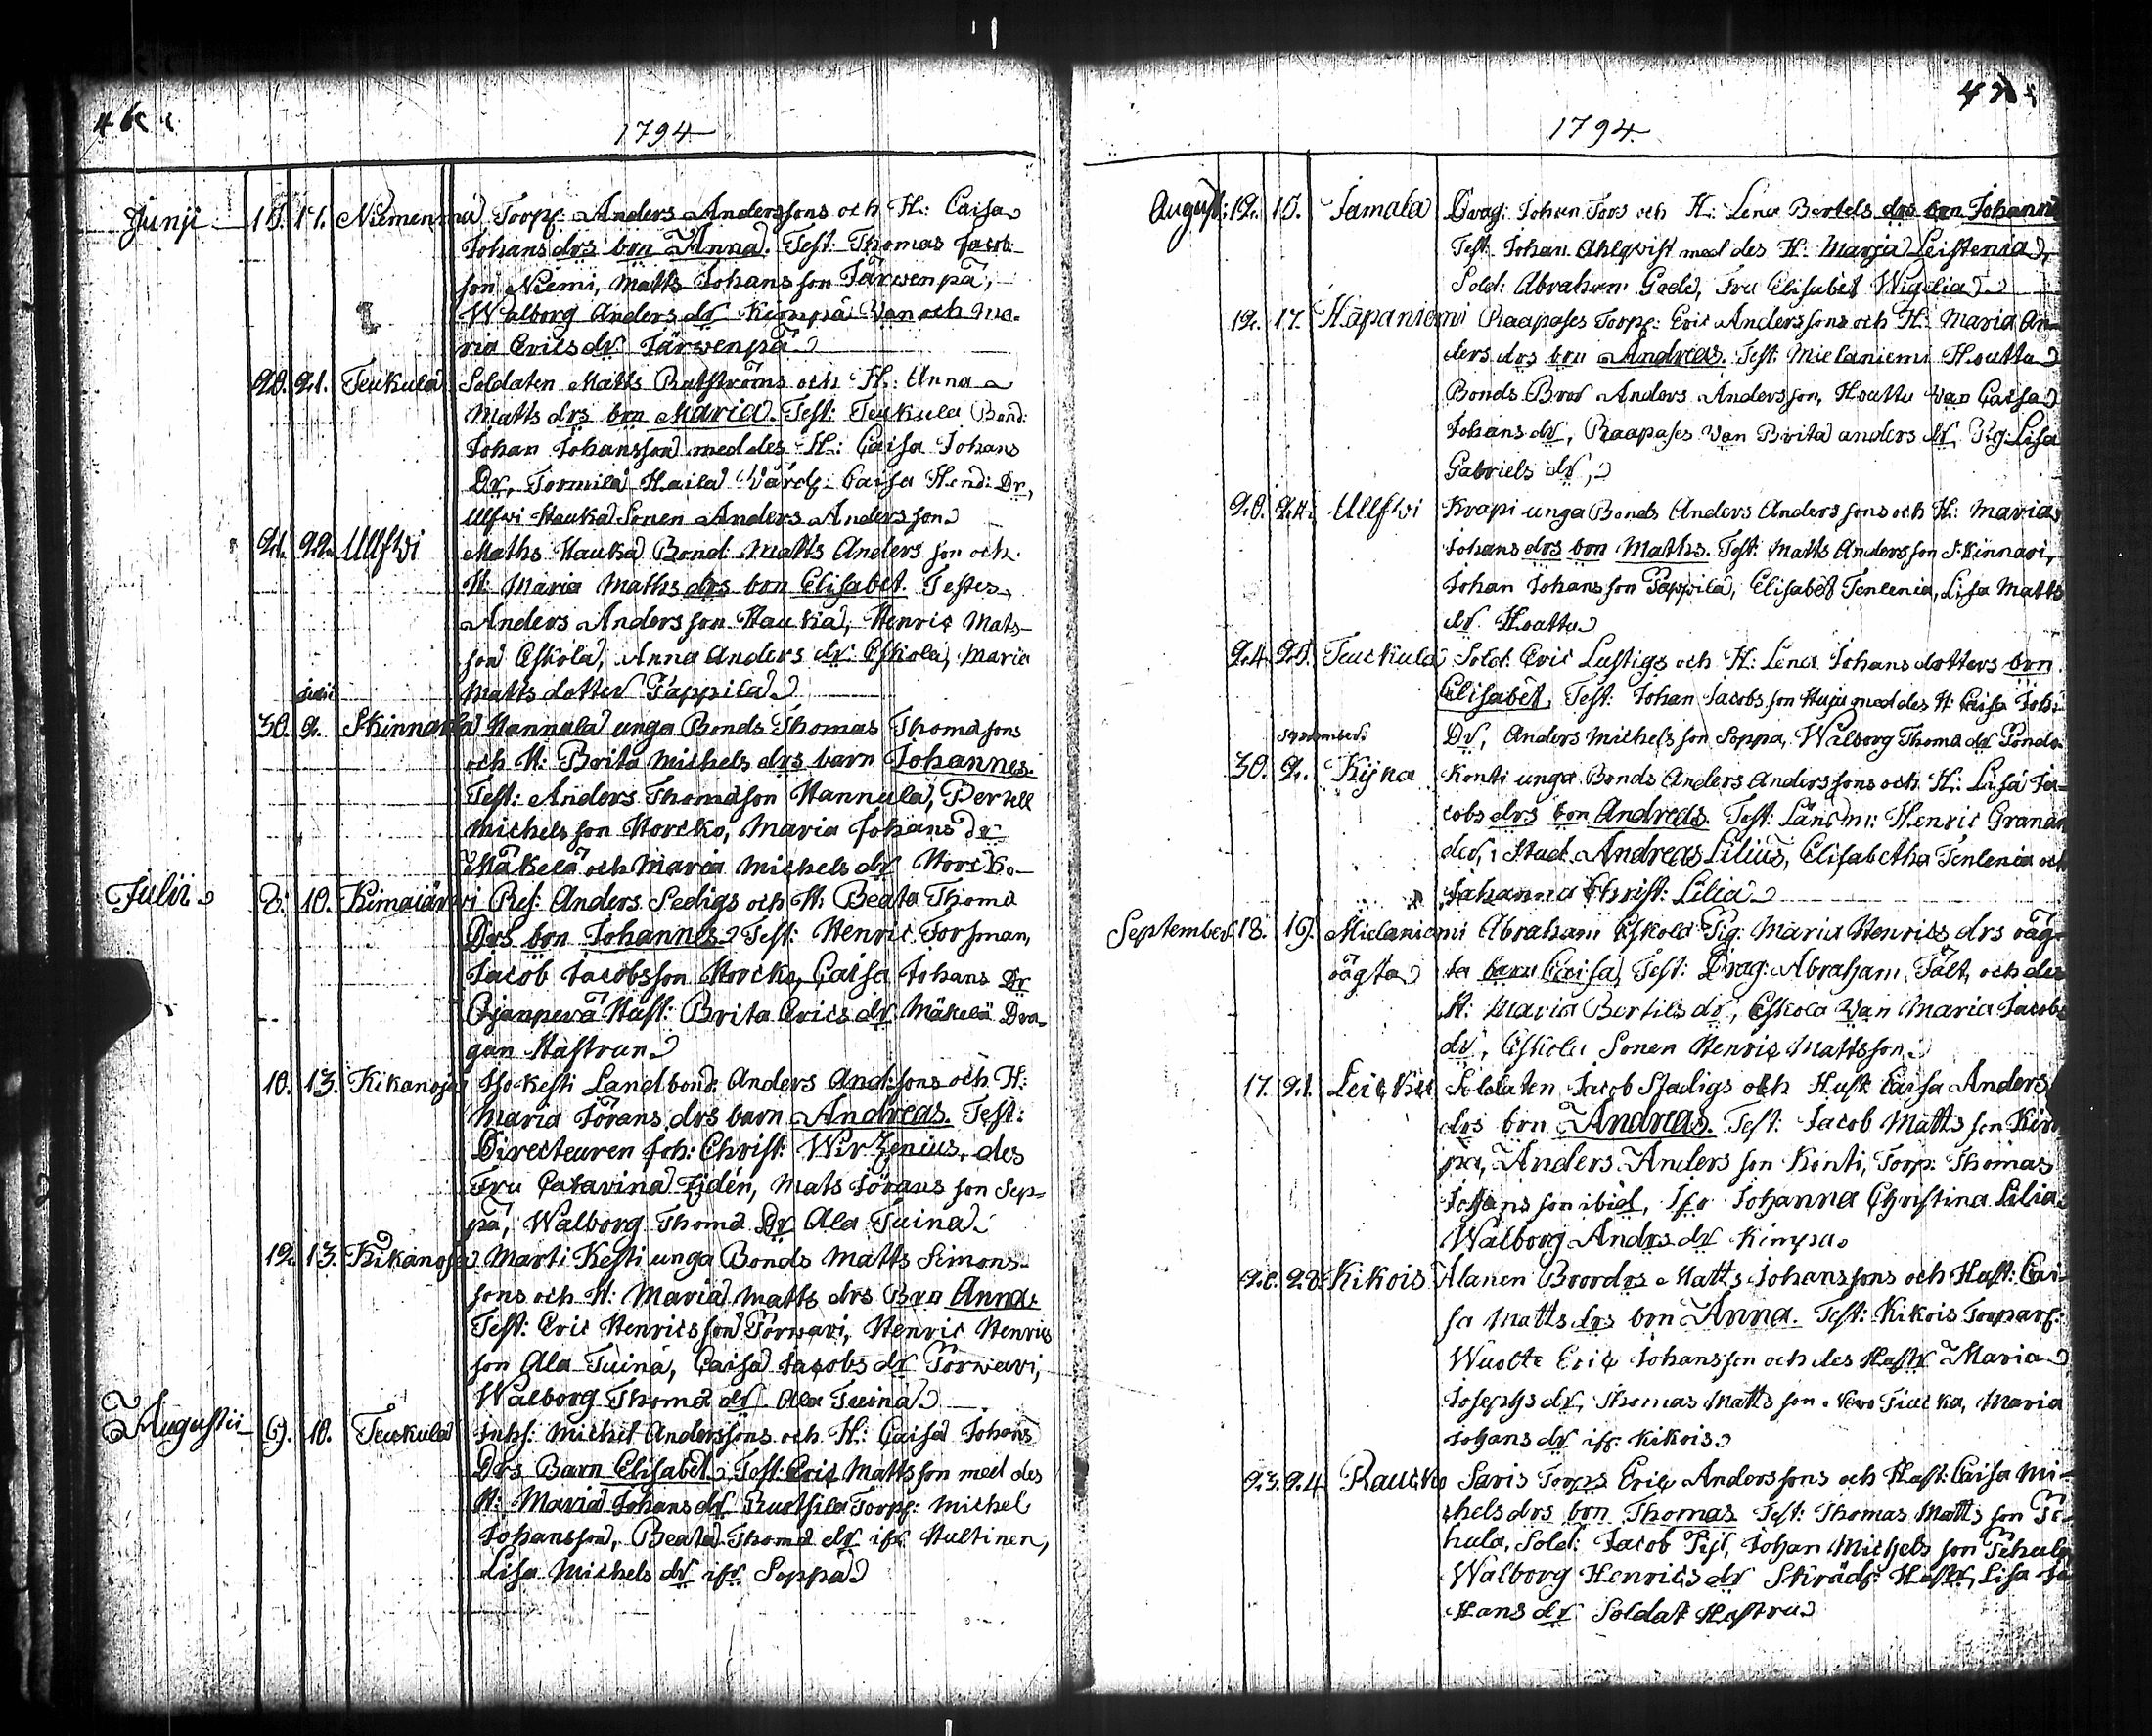 46
1794
Junji 15. 17. Niemenmä Torp: Anders Anderssons och H: Caisa
Johans drs brn Anna. Test: Thomas Jacob-
son Niemi, Matts Johansson Järwenpä,
Walborg Anders dr Kimpä Van och Ma-
ria Erics dr Järwenpä
20. 21. Teukula Soldaten Matts Ratströms och H: Anna
Matts drs brn Maria. Test: Teukula Bond:
Johan Johansson med des H: Caisa Johans
Dr, Tormila Haila Värdf: Caisa Hend: Dr,
Ullfwi Hauka Sonen Anders Andersson
21. 22. Ullfwi Maths Hauka Bond: Matts Andersson och
H: Maria Maths drs brn Elisabet. Testes
Anders Andersson Hauka, Henric Mats-
son Eskola, Anna Anders dr Eskola, Maria
Matts dotter Pappila
Julii
30. 2. Skinnarla Hannula unga Bonds Thomas Thomasons
och H: Brita Michels drs barn Johannes.
Test: Anders Thomason Hannula, Bertill
Michelsson Horcko, Maria Johans dr
Mäkelä och Maria Michels dr Horcko
Julii 8. 10. Kimaiärwi Ref: Anders Sedigs och H: Beata Thoma
Drs brn Johannes Test: Henric Forsman,
Jacob Jacobsson Horcko, Caisa Johans Dr
Ojanperä Hast: Brita Erics dr Mäkelä Dra-
gun Hastrun
10. 13. Kikanoja Iso Kesti Landbond: Anders And:sons och H:
Maria Jörans drs barn Andreas. Test:
Directeuren Joh: Christ: Wirzenius, des
Fru Catarina Zidén, Mats Jöransson Sep-
pä, Walborg Thoma Dr Ala Tuina
12. 13. Kikanoja Marti Kesti unga Bonds Matts Simons-
sons och H: Maria Matts drs Brn Anna.
Test: Eric Henricsson Torwari, Henric Henrics
son Ala Tuina, Caisa Jacobs dr Torwari,
Walborg Thoma dr Ala Tuina
Augustii 9. 10. Teukula Inhs: Michel Anderssons och H: Caisa Johans
Drs Barn Elisabet. Test: Eric Mattsson med des
H: Maria Johans dr Ruotsila Torp: Michel
Johansson, Beata Thoma dr ifr Hultinen,
Lisa Michels dr ifr Soppa
47
1794.
August: 12. 15. Jamala Drag: Johan Fors och H: Lena Bertels drs brn Johannes
Test: Johan Ahlqvist med des H: Marja Leistenia,
Sold: Abraham Gode, Fru Elisabet Wigelia
12. 17. Hapaniemi Raapases Torp: Eric Anderssons och H: Maria An-
ders drs brn Andreas. Test: Mielaniemi Houttu
Bonds Bror Anders Andersson, Houttu Van Caisa
Johans dr, Raapases Van Brita anders dr, Pig: Lisa
Gabriels dr,
20. 24. Ullfwi Krapi unga Bonds Anders Anderssons och H: Maria
Johans drs brn Maths. Test: Matts Andersson S.Kinnari,
Johan Johansson Pappila, Elisabet Tenlenia, Lisa Matts
dr Houttu
24. 25. Teuckula Sold: Eric Lustigs och H: Lena Johansdotters brn
Elisabet, Test: Johan Jacobsson Huju med des H: Caisa Joh:
Dr, Anders Michelsson Soppa, Walborg Thoma dr Pondo
September
30. 2. Kyna Konti unga Bonds Anders Anderssons och H: Lisa Ja-
cobs drs brn Andreas. Test: Länsm: Henric Granan
der, Stud. Andreas Lilius, Elisabetha Tenlenia och
Johanna Christ: Lilia
September 18. 19. Mielaniemi Abraham Eskola Pig: Maria Henrics drs oäg-
oägta ta barn Caisa, Test: Drag: Abraham Fält, och des
H: Maria Bertils dr, Eskola Van Maria Jacobs
dr, Eskola Sonen Henric Mattsson
17. 21. Leickis Soldaten Jacob Stadigs och Hust Caisa Anders
drs brn Andreas. Test: Jacob Mattsson Kim
pa, Anders Andersson Konti, Torp: Thomas
Johansson ibid, Jfr Johanna Christina Lilia
Walborg Andrs dr Kimpa
28. Kikois Alanen Broders Matts Johanssons och Hust: Cai-
sa Matts drs brn Anna. Test: Kikois Torparf:
Wuolte Eric Johansson och des Hustr Maria
Josephs dr, Thomas Mattsson Tiucka, Maria
Johans dr ifr Kikois
23. 24 Raucko Saris Torps Eric Anderssons och Hust: Caisa Mi-
chels drs brn Thomas Test: Thomas Mattsson Te-
hula, Sold: Jacob Pist, Johan Michelsson Tehula
Walborg Henrics dr Skrädf: Hustr, Lisa Jo
Hans dr Soldat Hustru